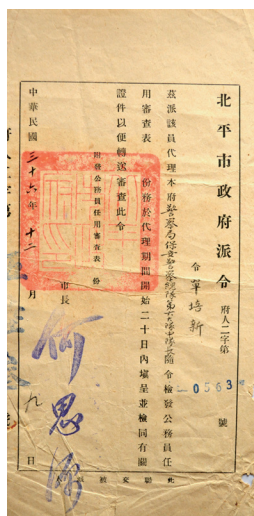 北平市政府派令 府人二字第0563號
令單培新
茲派該員代理本府警察局保安警察總隊第六大隊中隊長隨令檢發公務員任
用審查表 份務於代理期間開始二十日內塡呈並檢同有關
證件以便轉送審查此令
附發公務員任用審查表 份
市長何思源
中華民國三十六年十二月九日